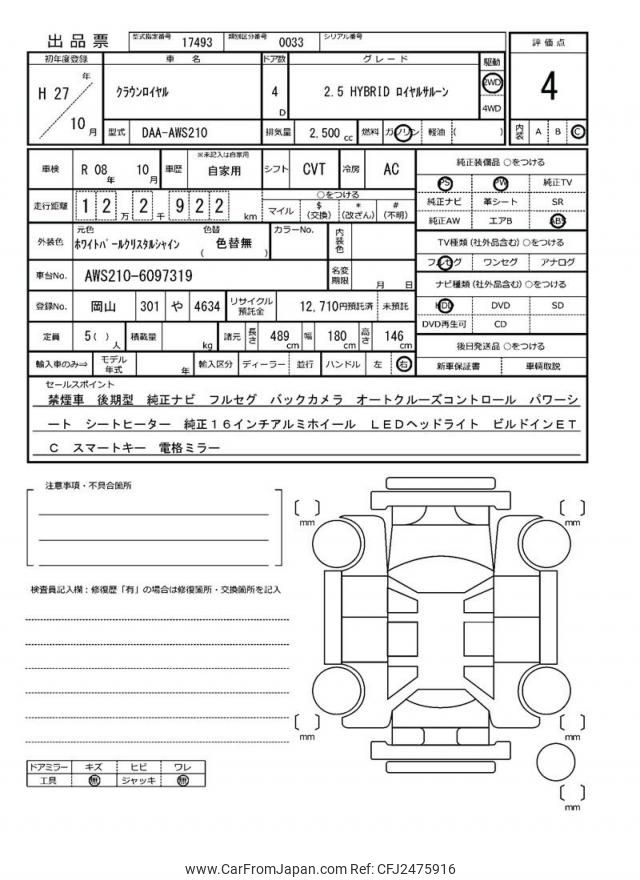 出品票 型式指定番号 17493 類別区分番号 0033 シリアル番号
初年度登録 車 名 ドア数 グレード 駆動 評価点
H 27 年 10 月 クラウンロイヤル 4 D 2.5 HYBRID ロイヤルサルーン 2WD 4WD 4
型式 DAA-AWS210 排気量 2,500 cc 燃料 ガソリン 軽油 ( ) 内装 A B C
車検 R 08 年 10 月 車歴 ※未記入は自家用 自家用 シフト CVT 冷房 AC
走行距離 1 2 万 2 千 9 2 2 km ○をつける
マイル $ (交換) * (改ざん) # (不明)
外装色 元色 ホワイトパールクリスタルシャイン 色替 ( 色替無 ) カラーNo. 内装色
車台No. AWS210-6097319 名変期限 月 日
登録No. 岡山 301 や 4634 リサイクル預託金 12,710円預託済 未預託
定員 5 ( ) 人 積載量 kg 諸元 長さ 489 cm 幅 180 cm 高さ 146 cm
輸入車のみ⇒ モデル年式 年 輸入区分 ディーラー 並行 ハンドル 左 右
純正装備品 ○をつける
PS PW 純正TV
純正ナビ 革シート SR
純正AW エアB ABS
TV種類 (社外品含む) ○をつける
フルセグ ワンセグ アナログ
ナビ種類 (社外品含む) ○をつける
HDD DVD SD
DVD再生可 CD
後日発送品 ○をつける
新車保証書 車輌取説
セールスポイント
禁煙車 後期型 純正ナビ フルセグ バックカメラ オートクルーズコントロール パワーシ
ート シートヒーター 純正16インチアルミホイール LEDヘッドライト ビルドインET
C スマートキー 電格ミラー
注意事項・不具合箇所
検査員記入欄：修復歴「有」の場合は修復箇所・交換箇所を記入
ドアミラー キズ ヒビ ワレ
工具 無 ジャッキ 無
mm
mm
mm
mm
mm
www.CarFromJapan.com Ref: CFJ2475916